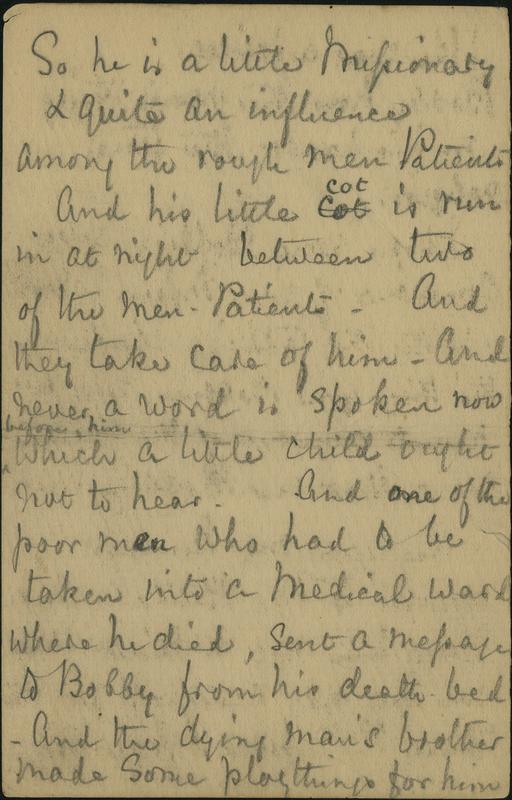 So he is a little Missionary
& quite an influence
among the rough men Patients
And his little Cot cot is run
in at night between two
of the men-Patients - And
they take care of him - And
never a word is spoken now
before him
which a little child ought
not to hear. And one of the
poor men who had to be
taken into a Medical ward
where he died, sent a message
to Bobby from his death-bed
- And the dying man's brother
made some playthings for him